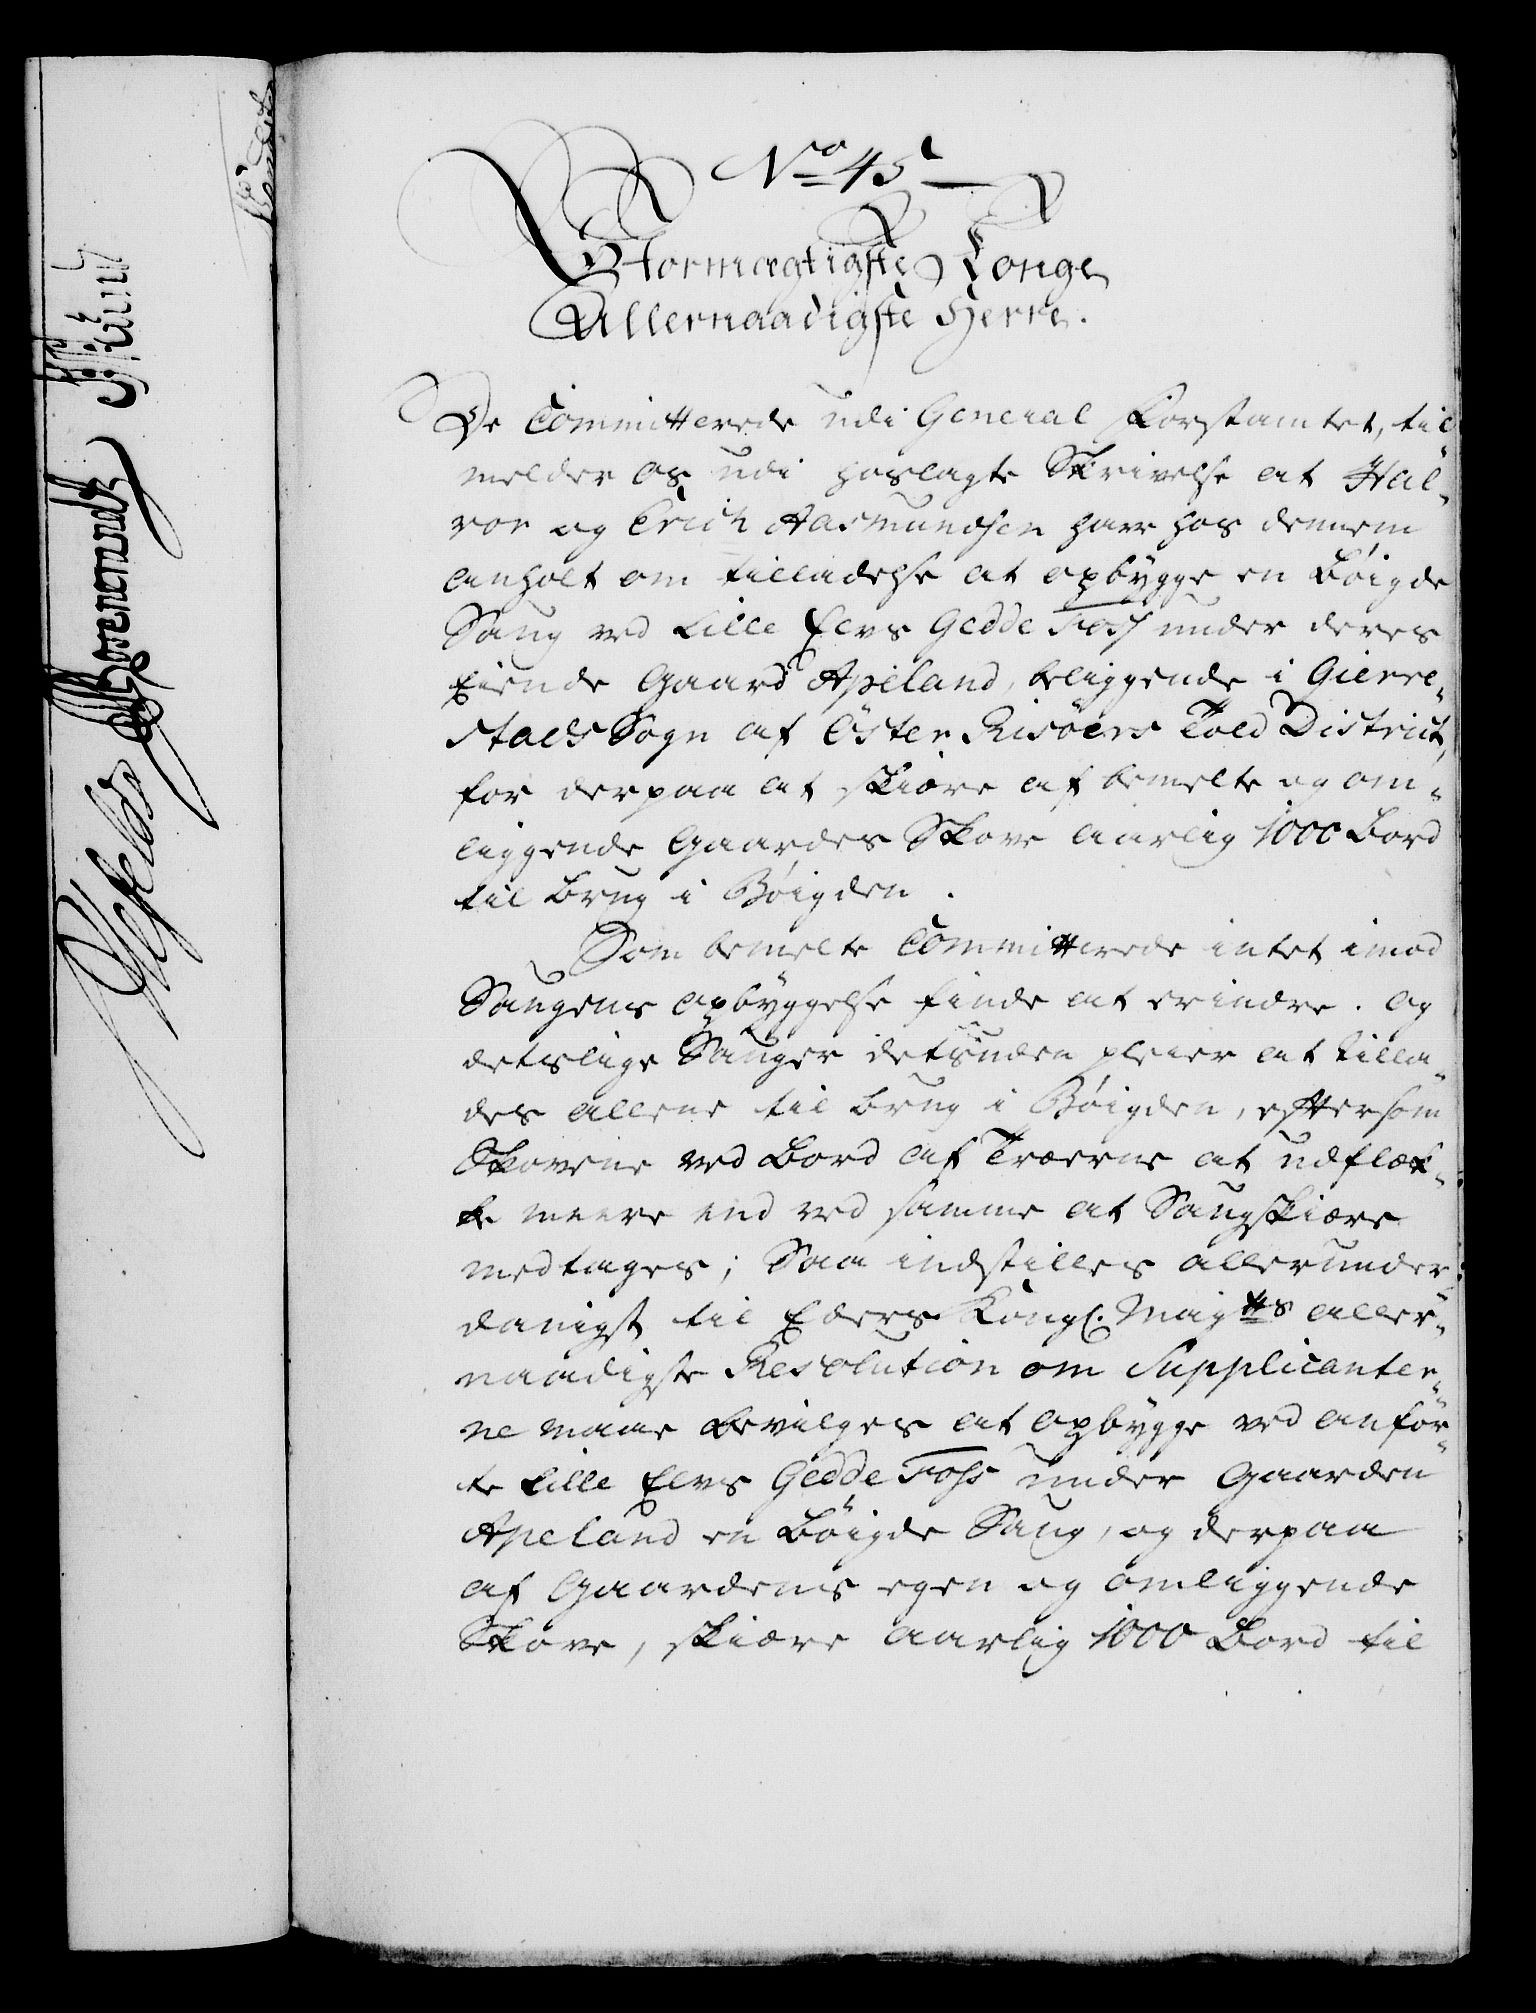 No 45
Stormægtigste Konge
Allernaadigste Herre.
De Committerede udi General Forstamtet, til-
melder os udi hoslagte Skrivelse at Hal-
vor og Erich Aasmundsen har hos dennem
anholt om tilladelse at opbygge en Bøigde
Saug ved Lille Elvs Gedde Foss under deres
Eiende Gaard Apeland, beliggende i Gierre-
stads Sogn af Öster Risöers Told District,
for derpaa at skiære af bemelte og om-
liggende Gaardes Skove aarlig 1000 Bord
til Brug i Bøigden.
Som bemelte Committerede intet imod
Saugens opbyggelse finde at erindre. og
detslige Sauger desuden pleier at tilla-
des allene til brug i Bøigden, eftersom
Skovene ved Bord af Træerne at udflæk-
ke meere end ved samme at Saugskiære
medtages; Saa indstilles allerunder-
danigst til Eders Kongl. Mayts aller-
naadigste Resolution om Supplicanter-
ne maae bevilges at opbygge ved anför-
te Lille Elvs Gedde Foss under Gaarden
Apeland en Bøigde Saug, og derpaa
af Gaardens egen og omliggende
Skove, skiære aarlig 1000 Bord til